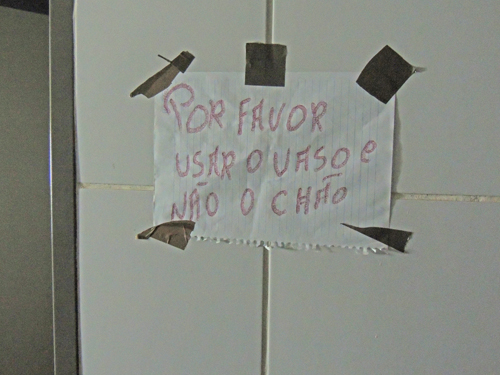 POR FAVOR
USAR O VASO e
NÃO O CHÃO